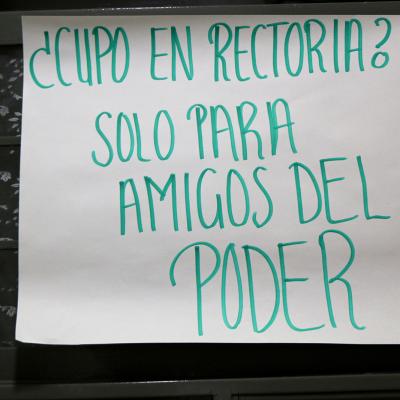 ¿CUPO EN RECTORIA?
SOLO PARA
AMIGOS DEL
PODER